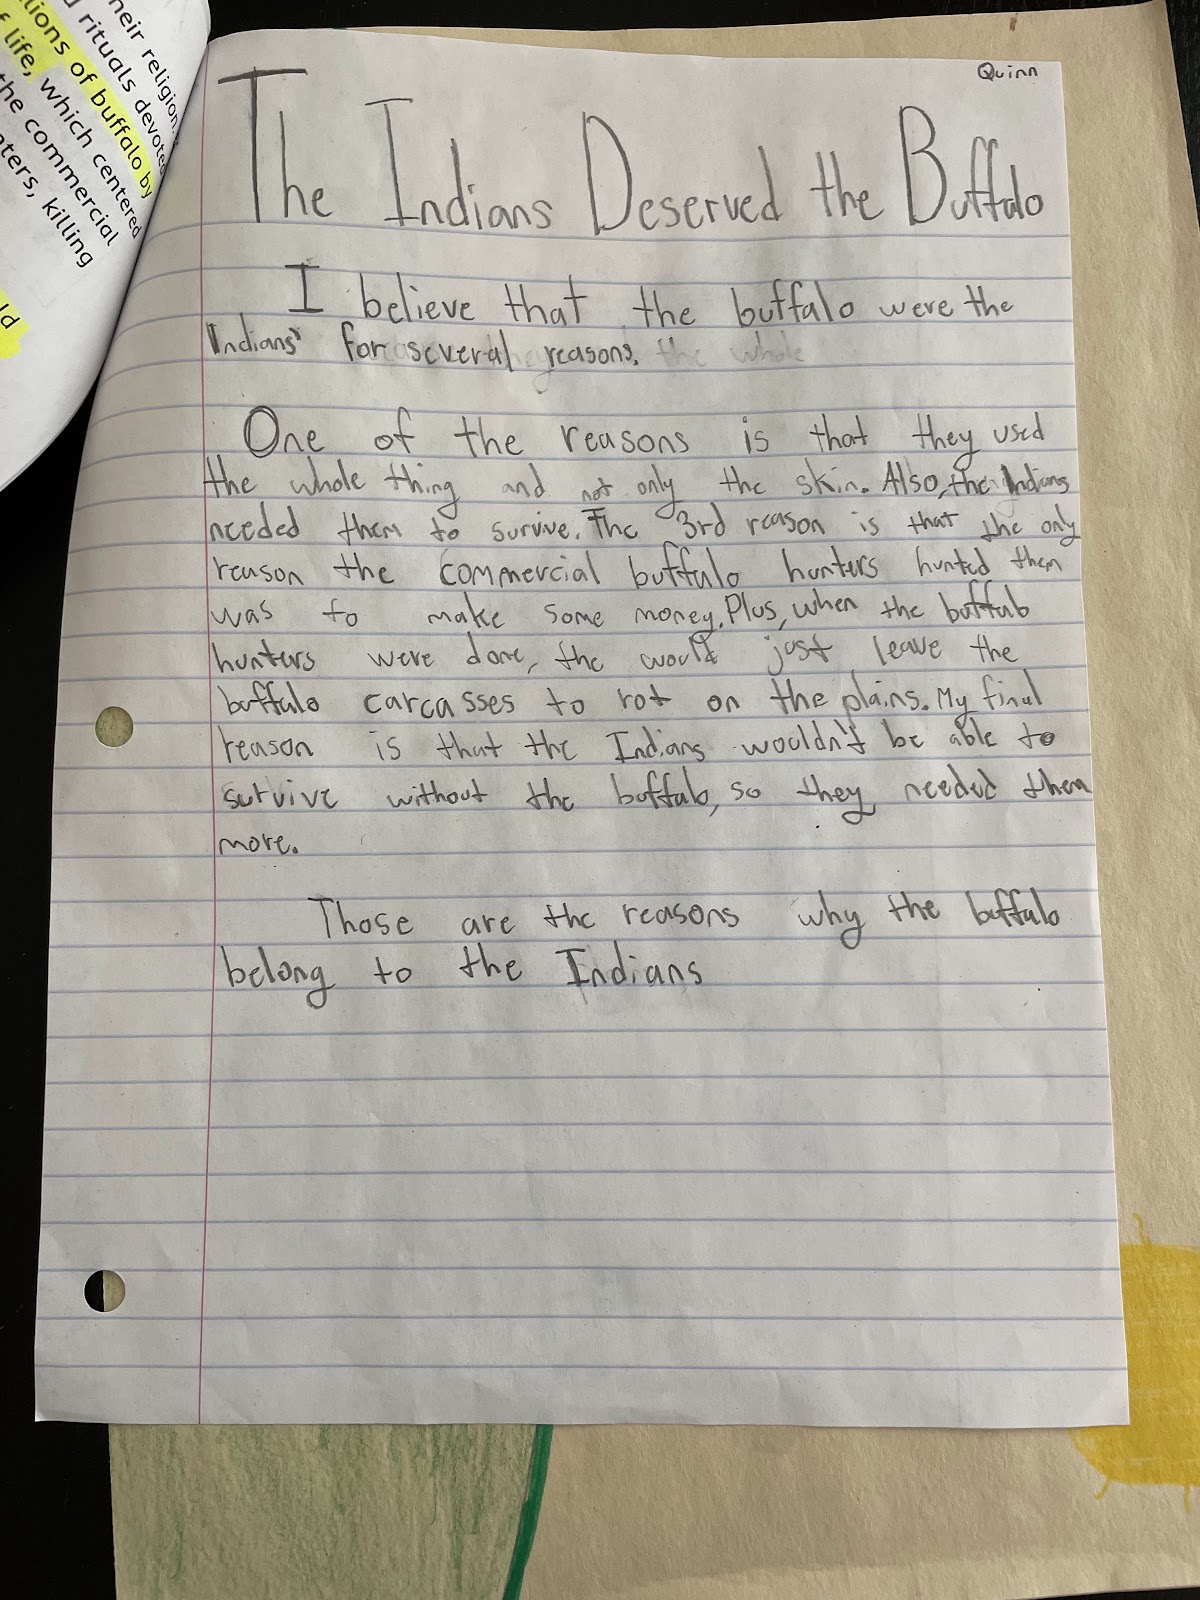 heir religion.
rituals devoted
lions of buffalo by
life, which centered
the commercial
nters, killing
ld
Quinn
The Indians Deserved the Buffalo
I believe that the buffalo were the
Indians' for several reasons. the whole
One of the reasons is that they used
the whole thing and not only the skin. Also, the Indians
needed them to survive. The 3rd reason is that the only
reason the commercial buffalo hunters hunted them
was to make some money. Plus, when the buffalo
hunters were done, the would just leave the
buffalo carcasses to rot on the plains. My final
reason is that the Indians wouldn't be able to
survive without the buffalo, so they needed them
more.
Those are the reasons why the buffalo
belong to the Indians